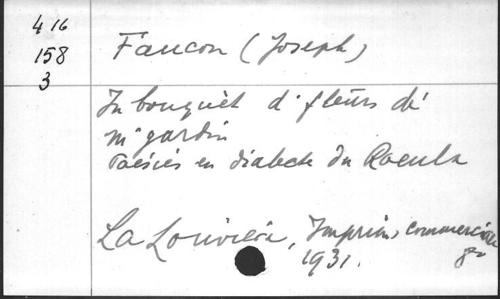 416
158
3
Faucon (Joseph)
In bouquèt d'fleûrs dé
m'gardin
Poésies en dialecte du Roeulx
La Louvière, Imprim, commerciale
1931.